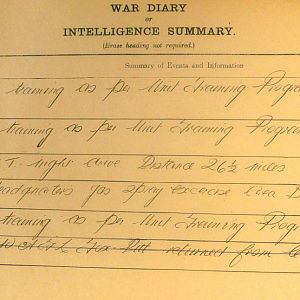 WAR DIARY
or
INTELLIGENCE SUMMARY.
(Erase heading not required.)
Summary of Events and Information
training as per Unit Training Program
training as per Unit Training Program
T. night drive Distance 26½ miles
Headquarters gas spray exercise
training as per Unit Training Program
returned from